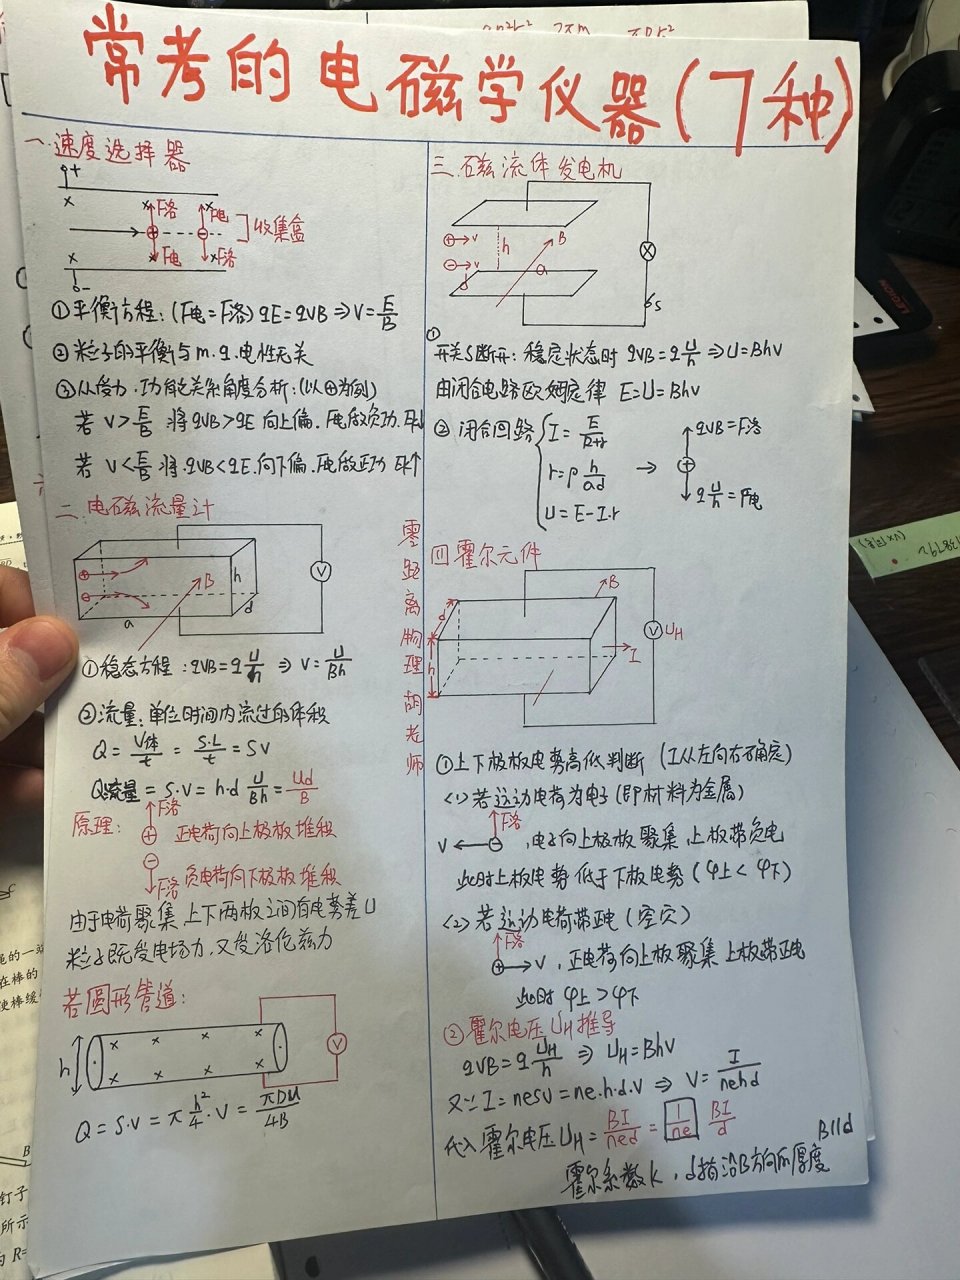 常考的电磁学仪器(7种)
一.速度选择器
+
F洛
F电
F电
F洛
收集盒
①平衡方程:(F电=F洛) qE=qVB⇒V=E/B
②粒子的平衡与m.q.电性无关
③从受力.功能关系角度分析:(以⊕为例)
若 V>E/B 将 qVB>qE 向上偏.F电做负功.Ek↓
若 V<E/B 将.qVB<qE.向下偏.F电做正功 Ek↑
二.电磁流量计
B
h
d
a
V
①稳态方程:qVB=q U/h ⇒ V=U/Bh
②流量:单位时间内流过的体积
Q=V体/t=S·L/t=SV
Q流量=S·V=h·d U/Bh=Ud/B
原理:
F洛
⊕ 正电荷向上极板堆积
⊖ 负电荷向下极板堆积
F洛
由于电荷聚集,上下两板之间有电势差U
粒子既受电场力,又受洛伦兹力
若圆形管道:
h
V
Q=S·V=π h²/4·V=πDU/4B
零距离物理胡老师
三.磁流体发电机
⊕→v
⊖→v
h
B
a
d
S
①
开关S断开:稳定状态时 qVB=q U/h ⇒U=Bhv
由闭合电路欧姆定律 E=U=Bhv
② 闭合回路
I=E/R+r
r=ρ h/ad
U=E-I·r
→
qVB=F洛
q U/h=F电
四 霍尔元件
B
d
h
I
V
UH
①上下极板电势高低判断 (I从左向右确定)
<1>若运动电荷为电子(即材料为金属)
F洛
V←⊖,电子向上极板聚集,上板带负电
此时上板电势低于下板电势(φ上<φ下)
<2>若运动电荷带正电(空穴)
F洛
⊕→V,正电荷向上板聚集 上板带正电
此时 φ上>φ下
②霍尔电压UH推导
qVB=q UH/h ⇒ UH=Bhv
又∵I=nesv=ne.h.d.V ⇒ V=I/nehd
代入霍尔电压UH=BI/ned=1/ne BI/d
B∥d
霍尔系数k,d指沿B方向所厚度